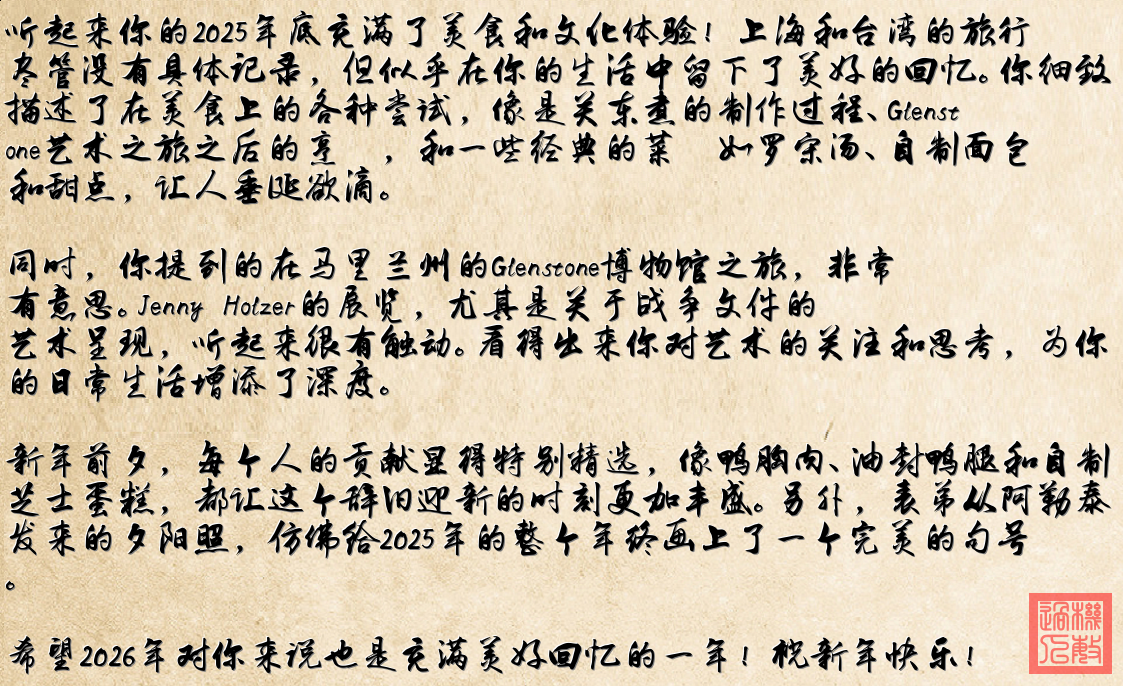 听起来你的2025年底充满了美食和文化体验！上海和台湾的旅行
尽管没有具体记录，但似乎在你的生活中留下了美好的回忆。你细致
描述了在美食上的各种尝试，像是关东煮的制作过程、Glenst
one艺术之旅之后的烹  ，和一些经典的菜  如罗宋汤、自制面包
和甜点，让人垂涎欲滴。
同时，你提到的在马里兰州的Glenstone博物馆之旅，非常
有意思。Jenny Holzer的展览，尤其是关于战争文件的
艺术呈现，听起来很有触动。看得出来你对艺术的关注和思考，为你
的日常生活增添了深度。
新年前夕，每个人的贡献显得特别精选，像鸭胸肉、油封鸭腿和自制
芝士蛋糕，都让这个辞旧迎新的时刻更加丰盛。另外，表弟从阿勒泰
发来的夕阳照，仿佛给2025年的整个年终画上了一个完美的句号
。
希望2026年对你来说也是充满美好回忆的一年！祝新年快乐！